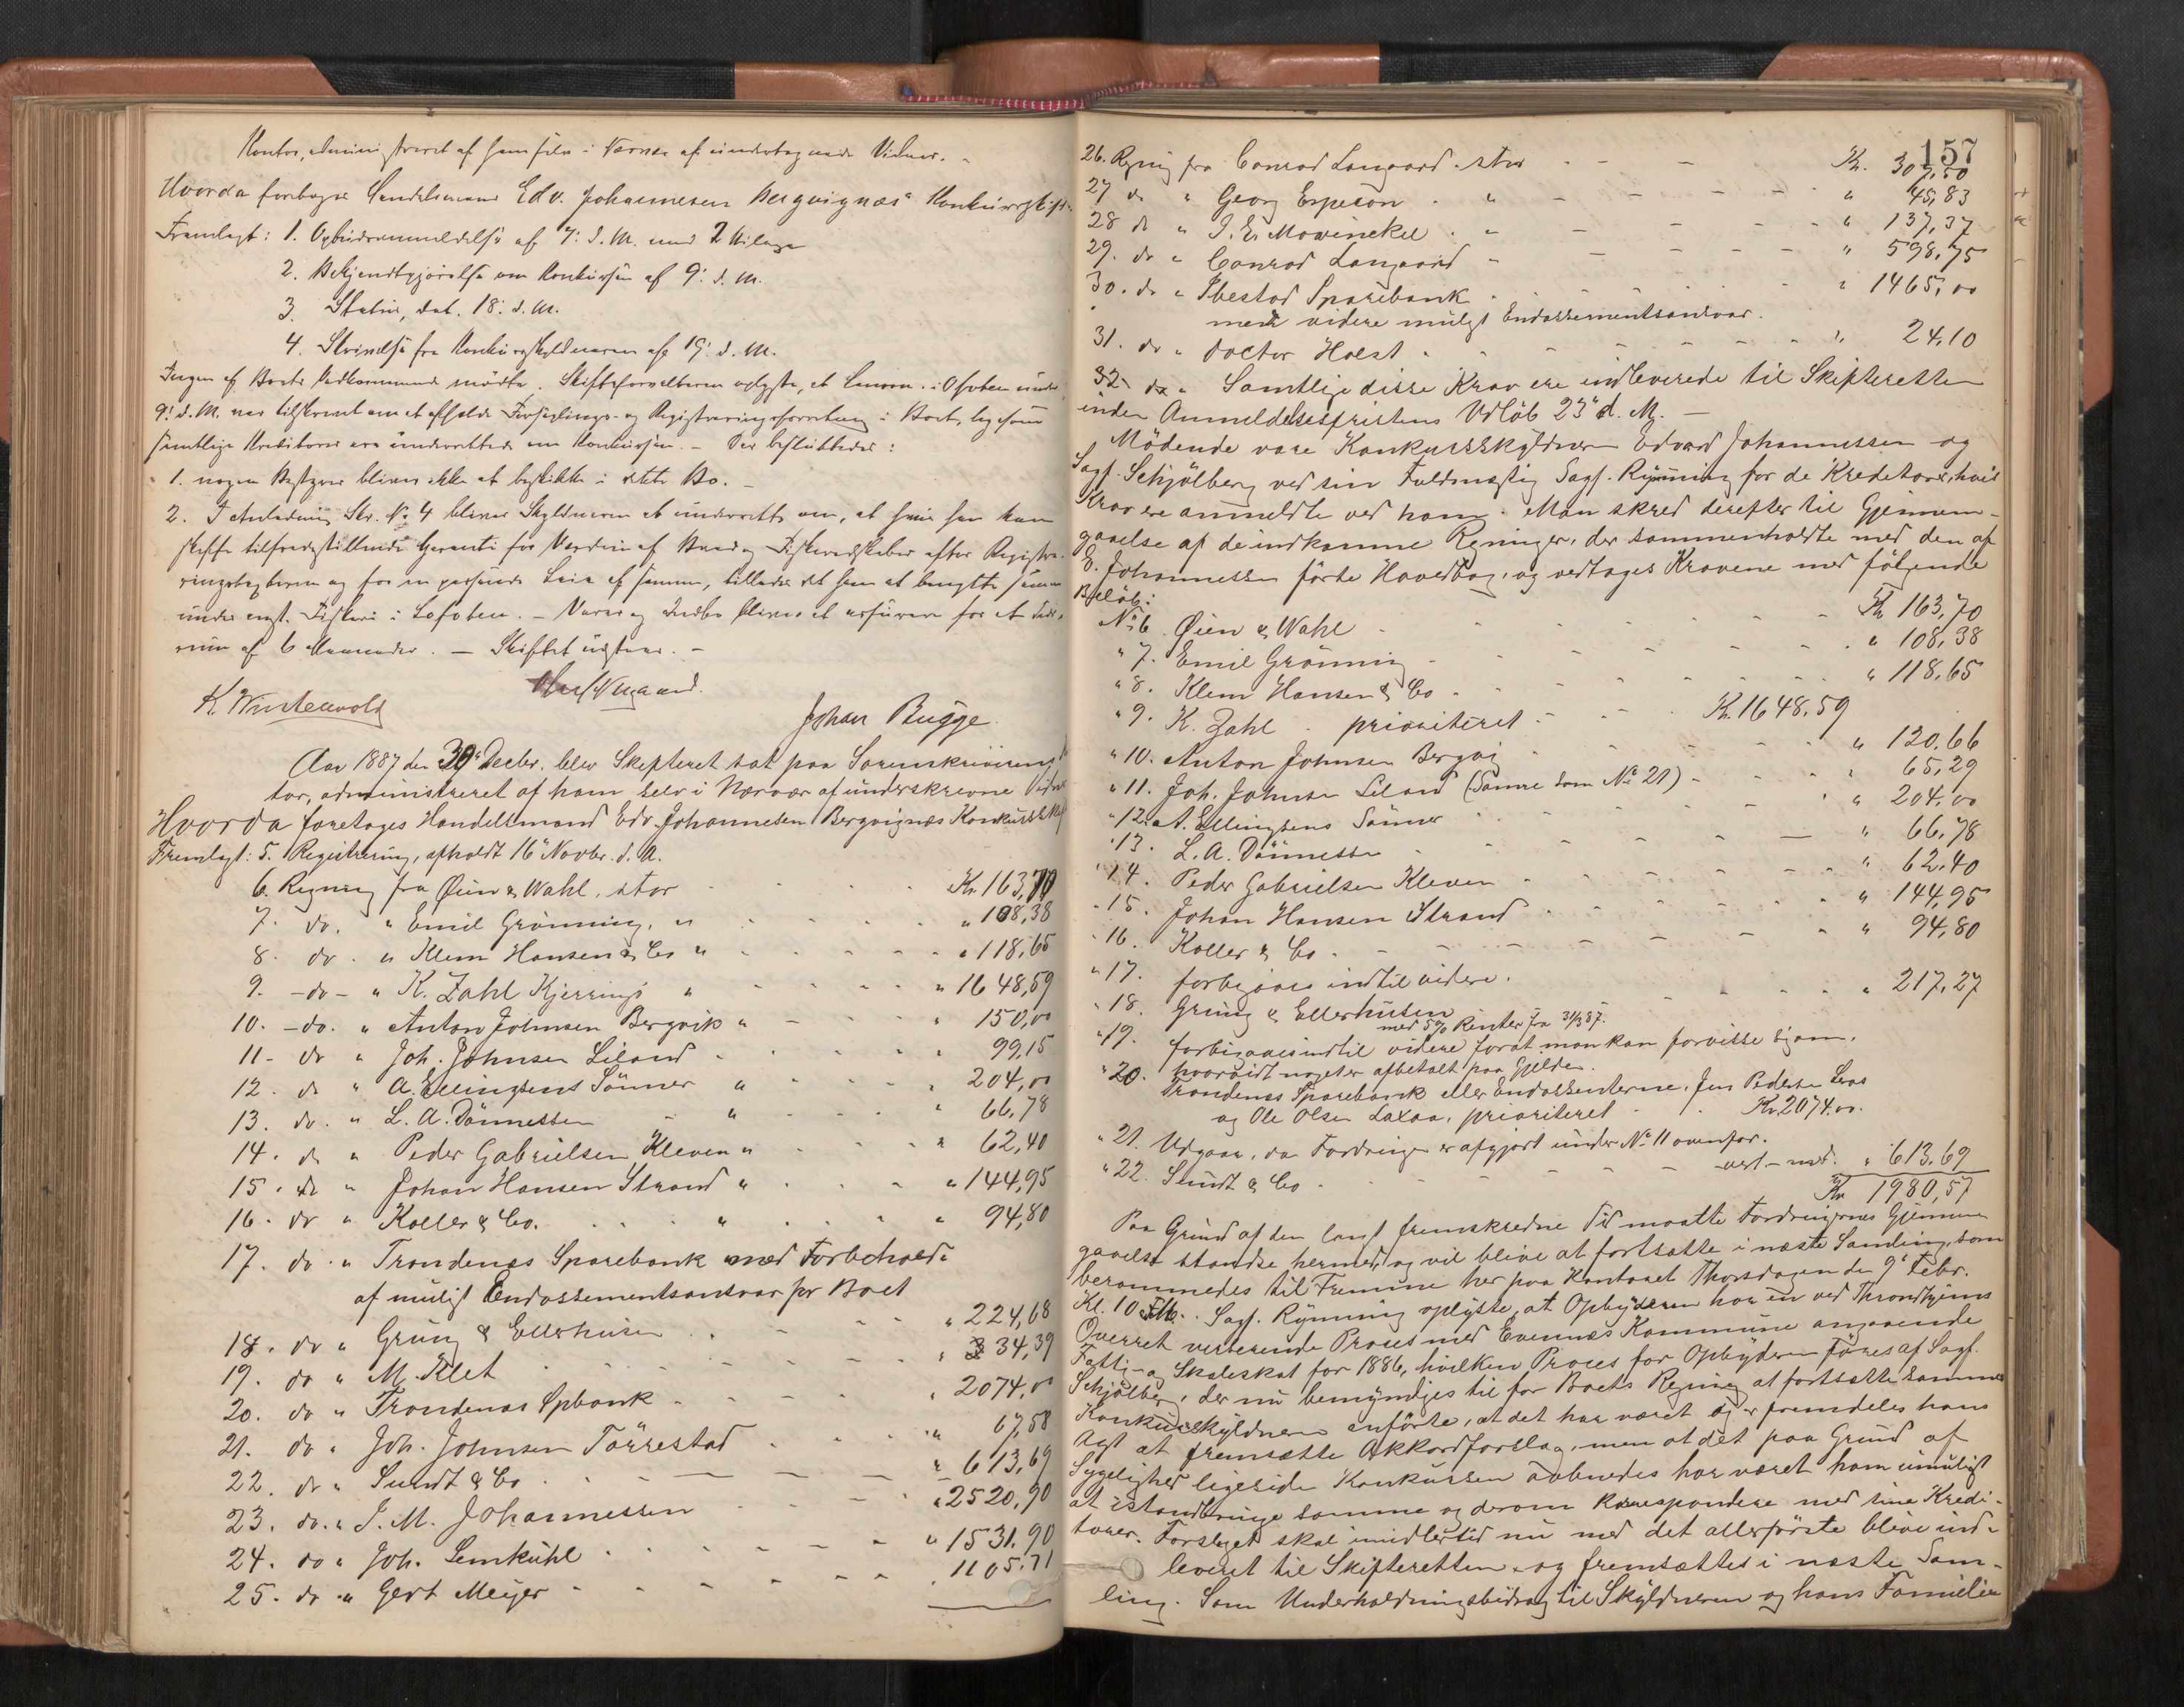 Kontor, administreret af ham selv i Nærvær af undertegnede Vidner.
Hvorda foretoges Handelsmand Edv. Johannesen Bergvignæs' Konkursskifte.
Fremlagt: 1. Opbudsanmeldelse af 7. d. M. med 2 Bilage
2. Bekjendtgjørelse om Konkursen af 9. d. M.
3. Status, dat. 18. d. M.
4. Skrivelse fra Konkursskyldneren af 19. d. M.
Ingen af Boets Vedkommende mødte. Skifteforvalteren oplyste, at Lensm. i Ofoten under
9. d. M. var tilskrevet om at afholde Forseglings- og Registreringsforretning i Boet, ligesom
samtlige Kreditorer ere underrettede om Konkursen. - Der besluttedes:
1. nogen Bestyrer bliver ikke at beskikke i dette Bo. -
2. I Anledning Skr. No 4 bliver Skyldneren at underrette om, at hvis han kan
skaffe tilfredsstillende Garanti for Værdien af Baad og Fiskeredskaber efter Registre-
ringstaxten og for en passende Leie af samme, tillades det ham at benytte samme
under  Fiskeri i Lofoten. - Varer og Indbo bliver at assurere for et Tids-
rum af 6 Maaneder. - Skiftet udstaar. -
K. Wintervold
Johan Bugge.
Aar 1887 den 30' Decbr. blev Skifteret sat paa Sorenskriverens
tor, administreret af ham selv i Nærvær af underskrevne Vidner
Hvorda foretoges Handelsmand Edv. Johannesen Bergvignæs Konkursskif
Fremlagt: 5. Registrering, afholdt 16' Novbr. d. A.
6. Regning fra Øien & Wahl, stor Kr. 163,70
7. do. " Emil Grønning, " " 108,38
8. do. " Klem Hansen & Co " " 118,65
9. -do- " K. Zahl Kjerringø " " 1648,59
10. -do. " Anton Johnsen Bergvik " " 150,00
11- do " Joh. Johnsen Liland - " 99,15
12. do " A. Ellingsens Sønner " " 204,00
13. do. " L. A. Dønnessen - " " 66,78
14. do " Peder Gabrielsen Kleven " " 62,40
15. do " Johan Hansen Strand " " 144,95
16. do " Koller & Co. " " 94,80
17. do. " Trondenæs Sparebank med Forbehold-
af muligt Endossementsansvar for Boet
18. do " Grung & Ellerhusen " 224,68
19. do " M. Klet " 334,39
20. do " Trondenæs Spbank - " 2074,00
21. do " Joh. Johnsen Tørrestad " 67,58
22. do " Sundt & Co " 613,69
23. do. " J. M. Johannessen " 2520,90
24. do " Joh. Lemkühl " 1531,90
25. do " Gert Meyer " 1105.71
157
26. Regning fra Conrad Langaard. stor Kr. 307,50
27 do " Georg Espeson " " 45,83
28 do " J. E. Mowinckel " " 137,37
29. do " Conrad Langaard " " 598,75
30. do " Ibestad Sparebank " 1465,00
med videre muligt Endossementsansvar.
31. do " Doctor Holst " 24,10
32. do " Samtlige disse Krav ere indleverede til Skifteretten
inden Anmeldelsesfristens Udløb 23' d. M. -
Mødende vare Konkursskyldneren Edvard Johannessen og
Sagf. Schjølberg ved sin Fuldmægtig Sagf. Rynning for de Kreditorer, hvis
Krav ere anmeldte ved ham. Man skred derefter til Gjennem-
gaaelse af de indkomne Regninger, der sammenholdte med den af
E. Johannessen førte Hovedbog, og vedtages Kravene med følgende
Beløb:
No 6 Øien & Wahl Kr 163,70
" 7. Emil Grønning " 108,38
" 8. Klem Hansen & Co " 118,65
" 9. K. Zahl. prioriteret - Kr. 1648,59
" 10. Anton Johnsen Bergvig " 120,66
" 11. Joh. Johnsen Liland (Samme som No 21) - " 65,29
" 12. A. Ellingsens Sønner " 204,00
" 13. L. A. Dønnessen " 66,78
" 14. Peder Gabrielsen Kleven " 62,40
" 15. Johan Hansen Strand " 144,95
" 16. Koller & Co. " 94,80
" 17. forbigaaes indtil videre.
" 18. Grung & Ellerhusen " 217,27
med 5% Renter fra 31/3 87.
" 19. forbigaaes indtil videre forat man kan forvisse sig om,
hvorvidt noget er afbetalt paa Gjelden.
" 20. Trondenæs Sparebank eller Endossenterne, Jens Pedersen Leos
og Ole Olsen Laxaa, prioriteret Kr. 2074.00.
" 21. Udgaar, da Fordringen er afgjort under No 11 ovenfor.
" 22. Sundt & Co " 613,69
Kr 1980,57
Paa Grund af den langt fremskredne Tid maatte Fordringernes Gjennem-
gaaelse standse hermed og vil blive at fortsætte i næste Samling, som
berammedes til Fremme her paa Kontoret Thorsdagen den 9' Febr.
Kl. 10 Fm. Sagf. Rynning oplyste, at Opbyderen har en ved Throndhjems
Overret verserende Proces med Evennæs Kommune angaaende
Fattig- og Skoleskat for 1886, hvilken Proces for Opbyderen føres af Sagf.
Schjølberg, der nu bemyndiges til for Boets Regning at fortsætte samme
Konkursskyldneren anførte, at det har været og er fremdeles hans
Agt at fremsætte Akkordforslag, men at det paa Grund af
Sygelighed ligesiden Konkursen aabnedes har været ham umuligt
at istandbringe samme og derom korrespondere med sine Kredi-
torer. Forslaget skal imidlertid nu med det allerførste blive ind-
leveret til Skifteretten og fremsættes i næste Sam-
ling. Som Underholdningsbidrag til Skyldneren og hans Familie